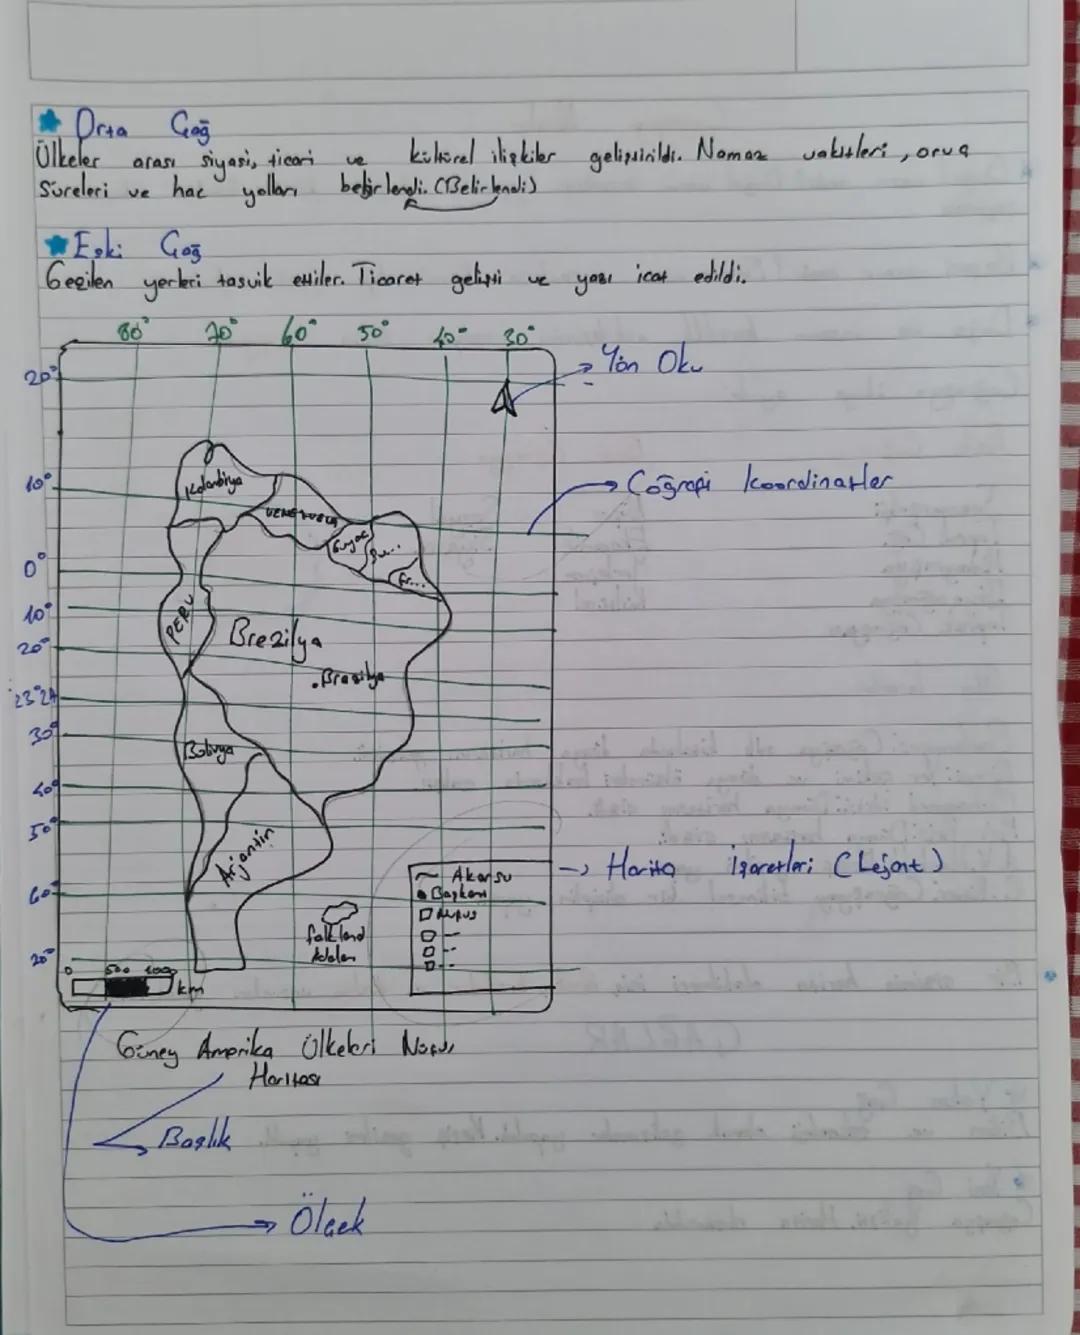 Orta Çağ
Ülkeler arası siyasi, ticari ve kültürel ilişkiler geliştirildi. Namaz vakitleri, oruç
Süreleri ve hac yolları belirlendi. (Belirlendi)
Eski Çağ
Gezilen yerleri tasvik ettiler. Ticaret gelişti ve yazı icat edildi.
80° 70° 60° 50° 40° 30°
Yön Oku
20°
10°
Kolombiya
Coğrafi Koordinatlar
VENEZUELA
Guyac
Su...
Fr...
0°
10°
PERU
Brezilya
20°
Brasilya
23°27
30°
Bolivya
40°
50°
Arjantin
Harita İşaretleri (Lejant)
Akarsu
Başkent
60°
Nüfus
Falkland
Adaları
20°
0 500 1000
km
Güney Amerika Ülkeleri Nüfus
Haritası
Başlık
Ölçek